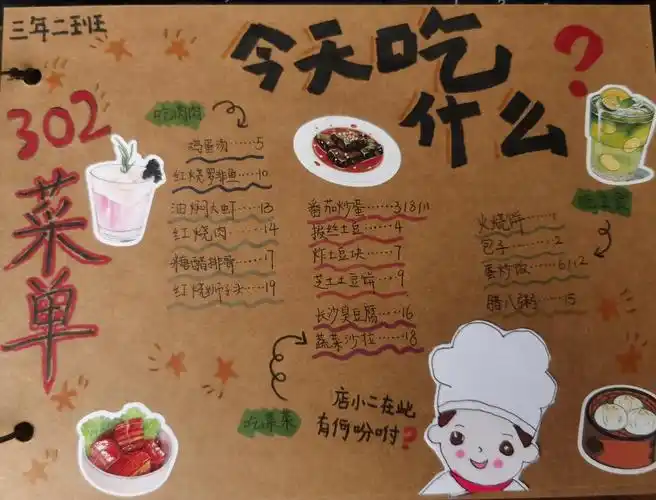 三年二班
今天吃
什么?
302
菜单
吃肉肉
鸡蛋汤……5
红烧罗非鱼……10
油焖大虾……13
红烧肉……14
糖醋排骨……17
红烧狮子头……19
番茄炒蛋……3 8 11
拔丝土豆……4
炸土豆块……7
芝士土豆饼……9
长沙臭豆腐……16
蔬菜沙拉……18
吃菜菜
吃主食
火烧饼……1
包子……2
蛋炒饭……6 12
腊八粥……15
店小二在此
有何吩咐?